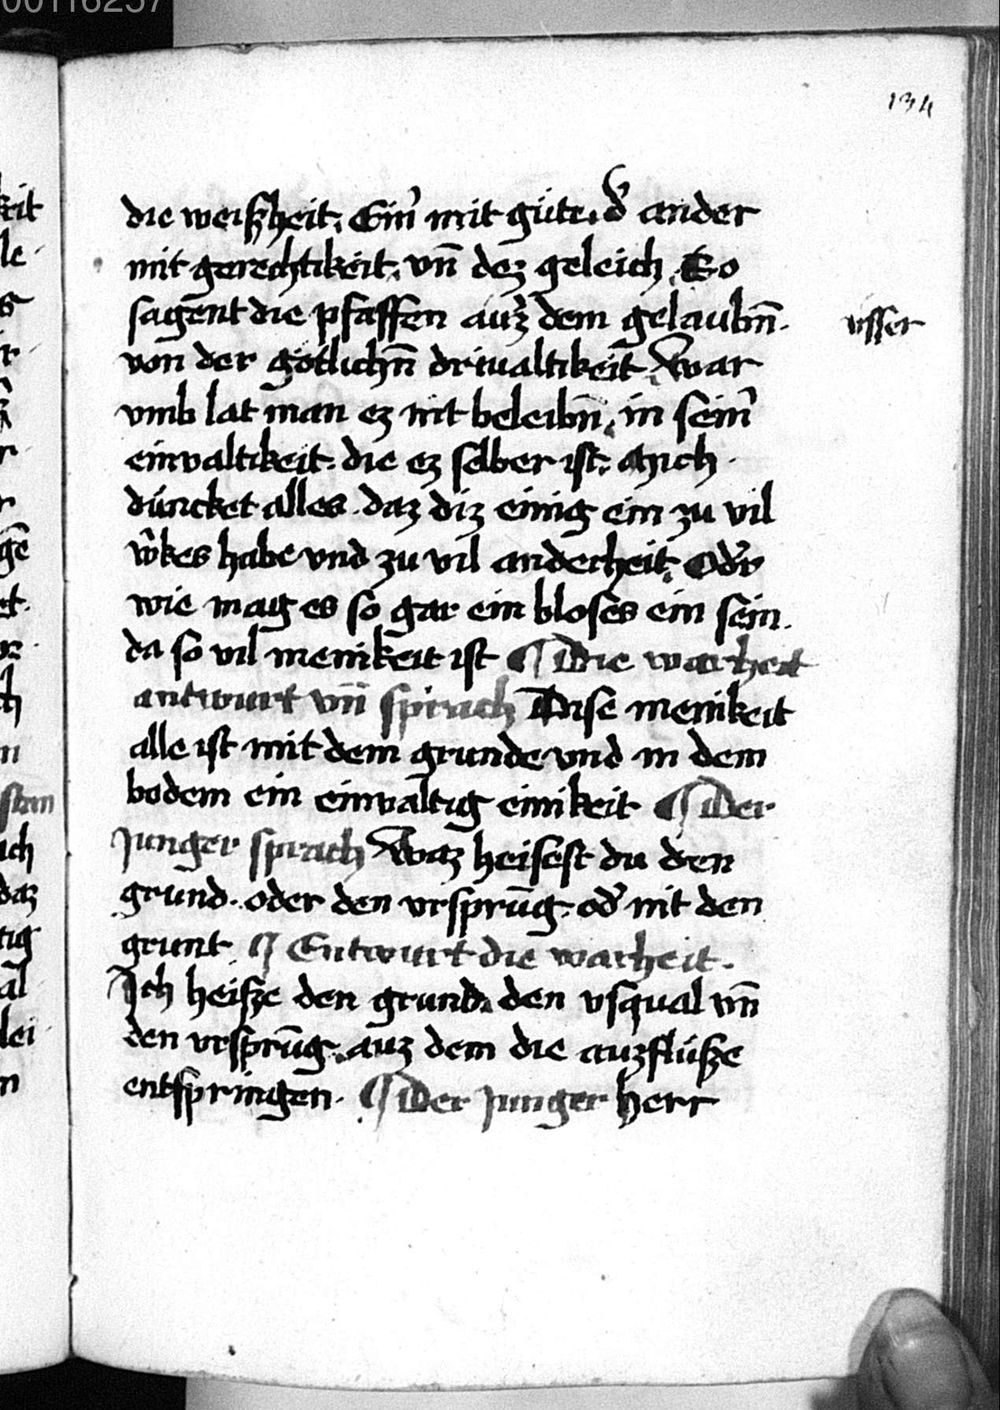 00116257
134
die weißheit. Ein' mit güte. d' ander
mit gerechtikeit. vn̄ dez geleich. So
sagent die pfaffen auz dem gelaubn̄.
vsser
von der götlichn̄ driualtikeit. War
vmb lat man ez nit beleibn̄. in sein'
einvaltikeit. die ez selber ist. Mich
düncket alles. daz diz einig ein zu vil
w'kes habe vnd zu vil anderheit. Od'r
wie mag es so gar ein bloses ein sein.
da so vil menikeit ist ¶ Die warheit
antwurt vn̄ sprach Dise menikeit
alle ist mit dem grunde vnd in dem
bodem ein einvaltig einikeit ¶ Der
Junger sprach Waz heisest du den
grund. oder den vrsprūg. od' nit den
grunt. ¶ Entwurt die warheit.
Ich heiße den grund. den vsqual vn̄
den vrsprūg. auz dem die auzflüße
entspringen. ¶ Der Junger Herr